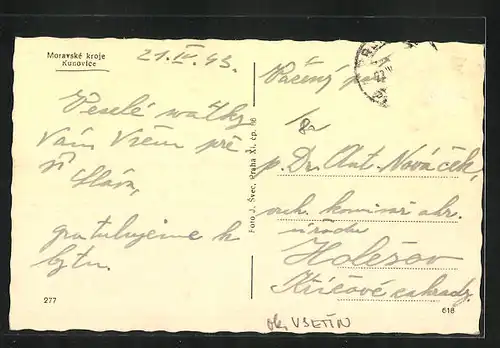 Moravské kroje
Kunovice
21.IV.43.
Veselé svátky
Vám Všem pře
jí Sláva,
gratulujeme k
bytu.
277
Foto J. Švec, Praha XI. čp. 86
Vážený pan
p. Dr. Ant. Nováček,
komisař okr.
úřadu
Holešov
Křičkové zahrady
618
okr. VSETÍN